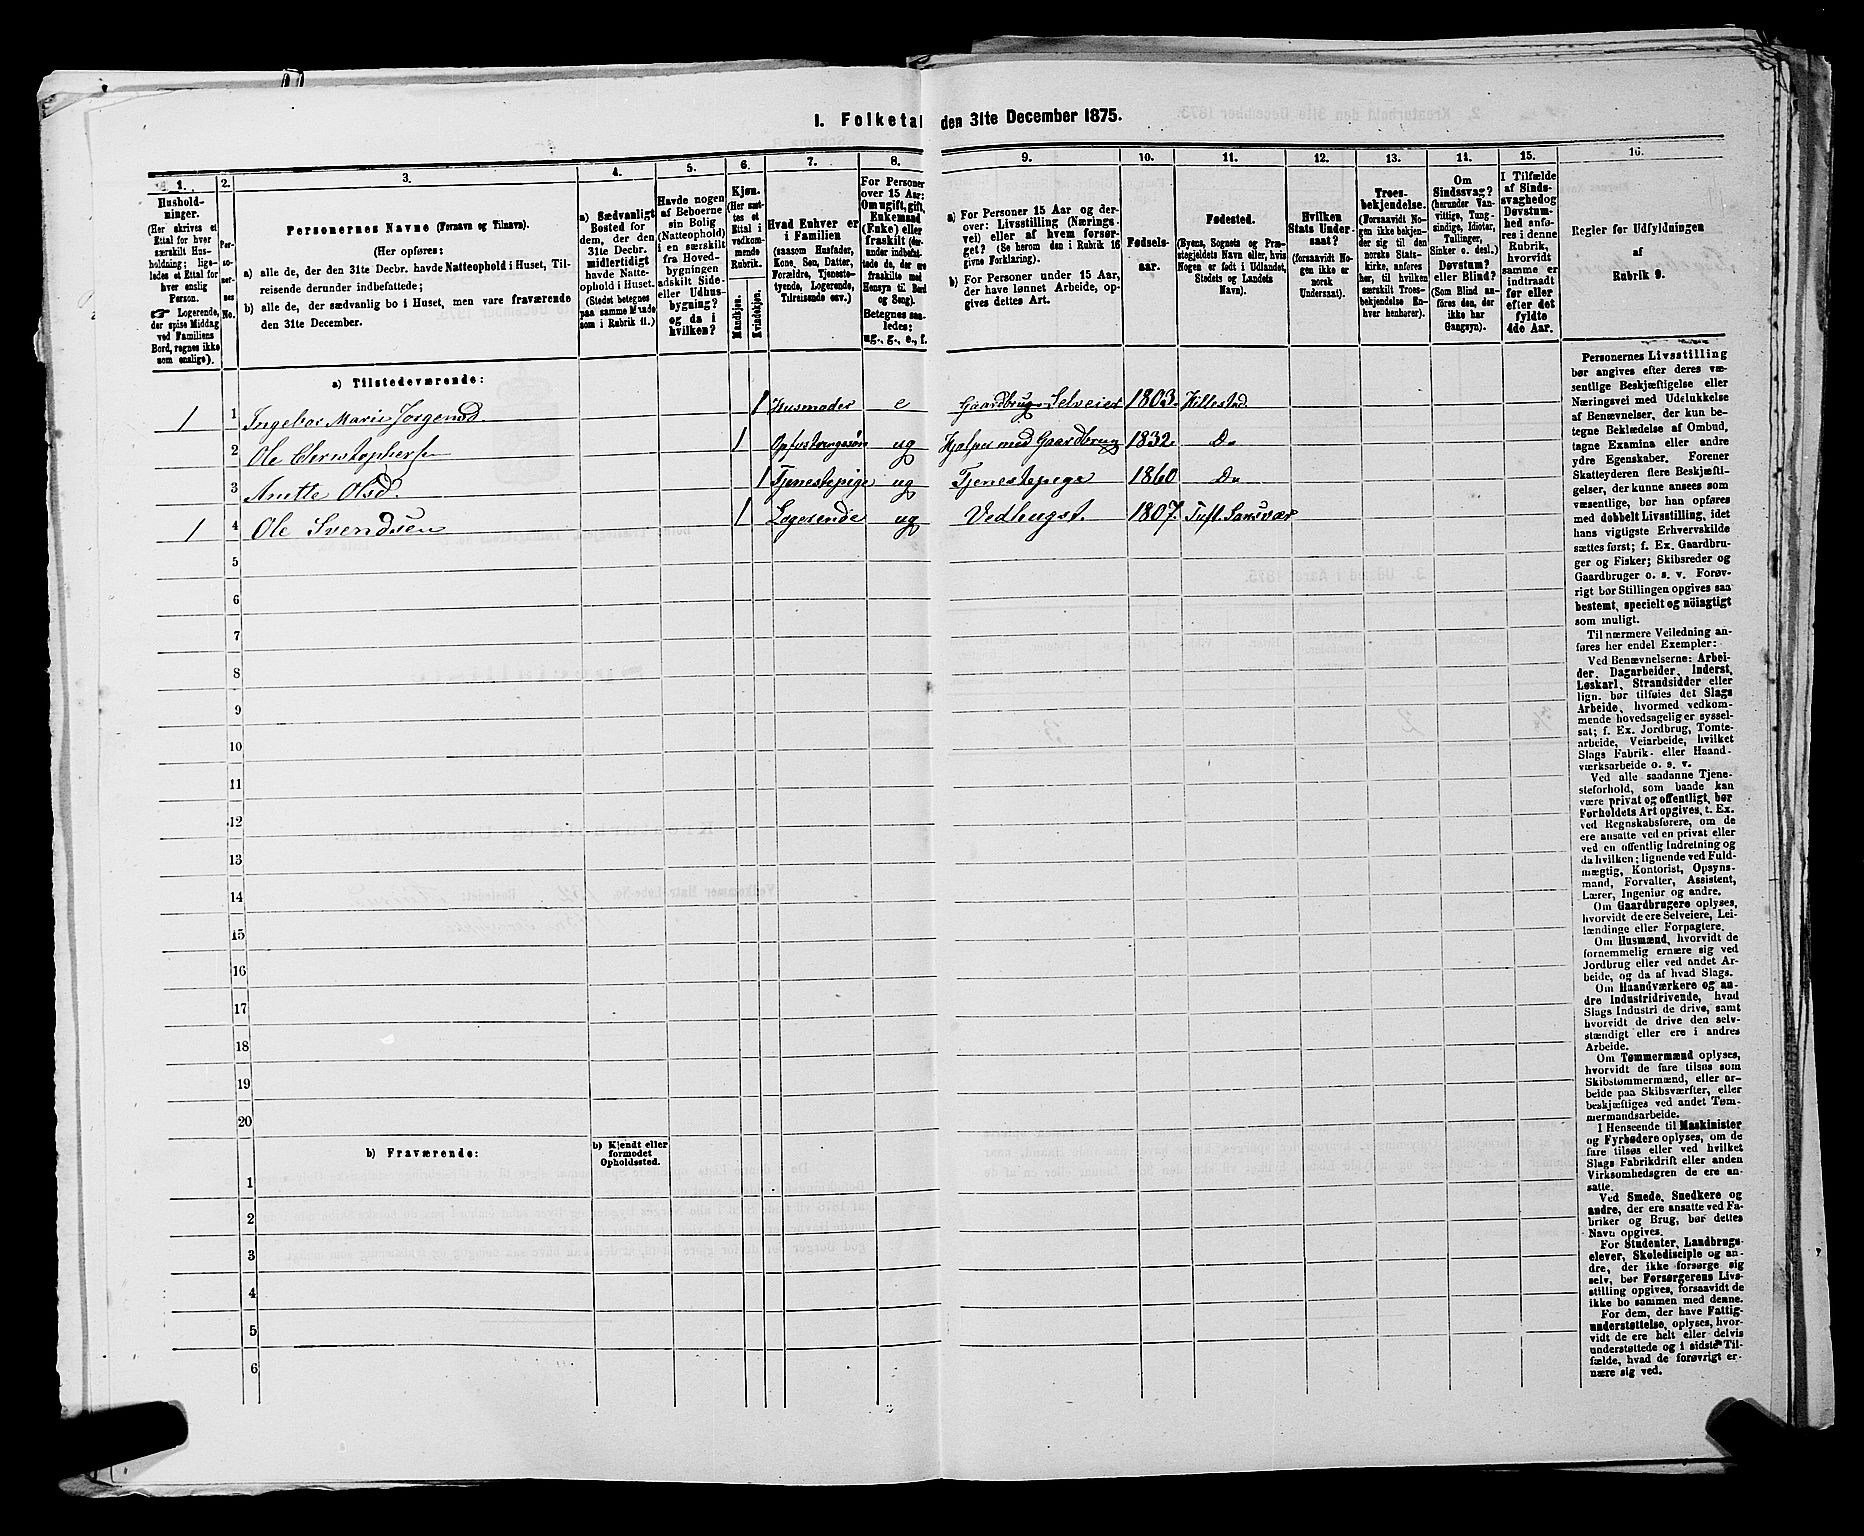 I. Folketal den 31te December 1875.
1.
2.
3.
4.
5.
6.
7.
8.
9.
10.
11.
12.
13.
14.
15.
16.
Hushold-
ninger.
(Her skrives et
Ettal for hver
særskilt Hus-
holdning; lige-
ledes et Ettal for
hver enslig
Person.
☛ Logerende,
der spise Middag
ved Familiens
Bord, regnes ikke
som enslige).
Per-
soner-
nes
No.
Personernes Navne (Fornavn og Tilnavn).
(Her opføres:
a) alle de, der den 31te Decbr. havde Natteophold i Huset, Til-
reisende derunder indbefattede;
b) alle de, der sædvanlig bo i Huset, men vare fraværende
den 31te December.
a) Sædvanligt
Bosted for
dem, der den
31te Decbr.
midlertidigt
havde Natte-
ophold i Huset.
(Stedet betegnes
paa samme Maade
som i Rubrik 11.)
Havde nogen
af Beboerne
sin Bolig
(Natteophold)
i en særskilt
fra Hoved-
bygningen
adskilt Side-
eller Udhus-
bygning?
og da i
hvilken?
Kjøn.
(Her sæt-
tes et
Ettal i
vedkom-
mende
Rubrik.
Mandkjøn.
Kvindekjøn.
Hvad Enhver er
i Familien
(saasom Husfader,
Kone, Søn, Datter,
Forældre, Tjeneste-
tyende, Logerende,
Tilreisende osv.)
For Personer
over 15 Aar:
Om ugift, gift,
Enkemand
(Enke) eller
fraskilt (der-
under indbefat-
tede de, der ere
fraskilte med
Hensyn til Bord
og Seng).
Betegnes saa-
ledes:
ug., g., e., f.
a) For Personer 15 Aar og der-
over: Livsstilling (Nærings-
vei) eller af hvem forsør-
get? (Se herom den i Rubrik 16
givne Forklaring).
b) For Personer under 15 Aar,
der have lønnet Arbeide, op-
gives dettes Art.
Fødsels-
aar.
Fødested.
(Byens, Sognets og Præ-
stegjeldets Navn eller, hvis
Nogen er født i Udlandet,
Stedets og Landets
Navn).
Hvilken
Stats Under-
saat?
(forsaavidt No-
gen ikke er
norsk
Undersaat).
Troes-
bekjendelse.
(Forsaavidt No-
gen ikke bekjen-
der sig til den
norske Stats-
kirke, anføres
her, til hvilken
særskilt Troes-
bekjendelse En-
hver henhører).
Om
Sindssvag?
(herunder Van-
vittige, Tung-
sindige, Idioter,
Tullinger,
Sinker o. desl.)
Døvstum?
eller Blind?
(Som Blind an-
føres den, der
ikke har
Gangsyn).
I Tilfælde
af Sinds-
svaghed og
Døvstum-
hed anfø-
res i denne
Rubrik,
hvorvidt
samme er
indtraadt
før eller
efter det
fyldte
4de Aar.
Regler for Udfyldningen
af
Rubrik 9.
a) Tilstedeværende:
1 1 Ingebor Marie Jorgensd 1 Husmoder e Gaardbrug Selveier 1803. Hillestad
2 Ole Christophersen 1 Opfostringssøn ug Hjelper med Gaardbrug 1832. Do
3 Anette Olsd. 1 Tjenestepige ug Tjenestepige 1860 Do
1 4 Ole Svendsen 1 Logerende ug Vedhugst. 1807.
5
6
7
8
9
10
11
12
13
14
15
16
17
18
19
20
b) Fraværende:
b) Kjendt eller
formodet
Opholdssted.
1
2
3
4
5
6
Personernes Livsstilling
bør angives efter deres væ-
sentlige Beskjæftigelse eller
Næringsvei med Udelukkelse
af Benævnelser, der kun be-
tegne Beklædelse af Ombud,
tagne Examina eller andre
ydre Egenskaber. Forener
Skatteyderen flere Beskjæfti-
gelser, der kunne ansees som
væsentlige, bør han opføres
med dobbelt Livsstilling, idet
hans vigtigste Erhvervskilde
sættes først; f. Ex. Gaardbru-
ger og Fisker; Skibsreder og
Gaardbruger o. s. v. Forøv-
rigt bør Stillingen opgives saa
bestemt, specielt og nöiagtigt
som muligt.
Til nærmere Veiledning an-
føres her endel Exempler:
Ved Benævnelserne: Arbei-
der, Dagarbeider, Inderst,
Løskarl, Strandsidder eller
lign. bør tilføies det Slags
Arbeide, hvormed vedkom-
mende hovedsagelig er syssel-
sat; f. Ex. Jordbrug, Tomte-
arbeide, Veiarbeide, hvilket
Slags Fabrik- eller Haand-
værksarbeide o. s. v.
Ved alle saadanne Tjene-
steforhold, som baade kan
være privat og offentligt, bør
Forholdets Art opgives, t. Ex.
ved Regnskabsførere, om de
ere ansatte ved en privat eller
ved en offentlig Indretning og
da hvilken; lignende ved Fuld-
mægtig, Kontorist, Opsyns-
mand, Forvalter, Assistent,
Lærer, Ingeniør og andre.
Om Gaardbrugere oplyses,
hvorvidt de ere Selveiere, Lei-
lændinge eller Forpagtere.
Om Husmænd, hvorvidt de
fornemmelig ernære sig ved
Jordbrug eller ved andet Ar-
beide, og da af hvad Slags.
Om Haandværkere og an-
dre Industridrivende, hvad
Slags Industri de drive, samt
hvorvidt de drive den selv-
stændigt eller ere i andres
Arbeide.
Om Tømmermænd oplyses,
hvorvidt de fare tilsøs som
Skibstømmermænd, eller ar-
beide paa Skibsværfter, eller
beskjæftiges ved andet Tøm-
mermandsarbeide.
I Henseende til Maskinister
og Fyrbødere oplyses, om de
fare tilsøs eller ved hvilket
Slags Fabrikdrift eller anden
Virksomhedsgren de ere an-
satte.
Ved Smede, Snedkere og
andre, der ere ansatte ved Fa-
briker og Brug, bør dettes
Navn opgives.
For Studenter, Landbrugs-
elever, Skoledisciple og an-
dre, der ikke forsørge sig
selv, bør Forsørgerens Livs-
stilling opgives, forsaavidt de
ikke bo sammen med denne.
For dem, der have Fattig-
understøttelse, oplyses, hvor-
vidt de ere helt eller delvis
understøttede og i sidste Til-
fælde, hvad de forøvrigt er-
nære sig ved.